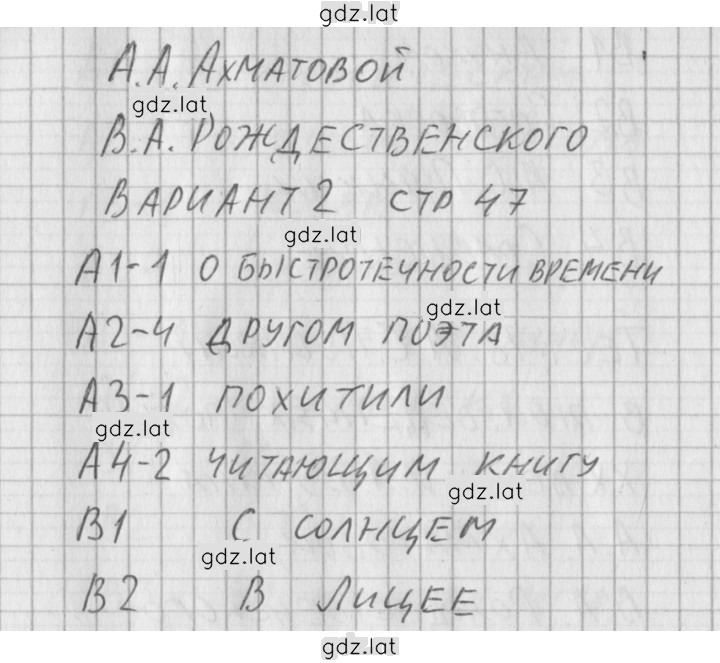 gdz.lat
А.А. АХМАТОВОЙ
gdz.lat
В.А. РОЖДЕСТВЕНСКОГО
ВАРИАНТ 2 СТР 47
gdz.lat
А1-1 О БЫСТРОТЕЧНОСТИ ВРЕМЕНИ
gdz.lat
А2-4 ДРУГОМ ПОЭТА
А3-1 ПОХИТИЛИ
gdz.lat
А4-2 ЧИТАЮЩИМ КНИГУ
gdz.lat
В1 С СОЛНЦЕМ
gdz.lat
В2 В ЛИЦЕЕ
gdz.lat